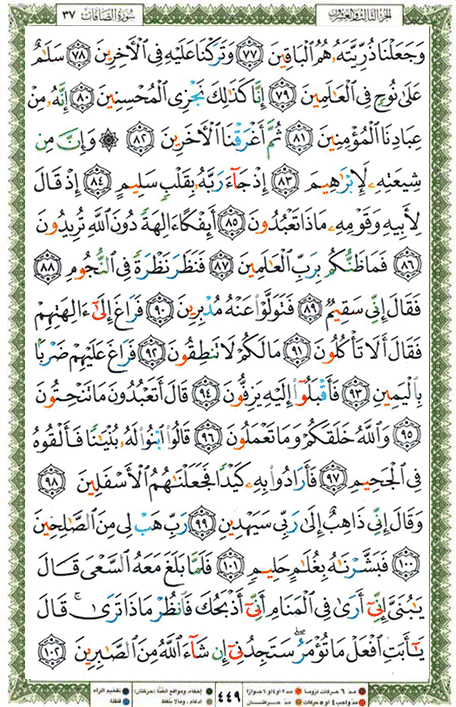 سُورَةُ الصَّافَّات ٣٧
الجزء الثالث والعشرون
وَجَعَلْنَا ذُرِّيَّتَهُۥ هُمُ ٱلْبَاقِينَ ٧٧ وَتَرَكْنَا عَلَيْهِ فِى ٱلْءَاخِرِينَ ٧٨ سَلَٰمٌ
عَلَىٰ نُوحٍ فِى ٱلْعَٰلَمِينَ ٧٩ إِنَّا كَذَٰلِكَ نَجْزِى ٱلْمُحْسِنِينَ ٨٠ إِنَّهُۥ مِنْ
عِبَادِنَا ٱلْمُؤْمِنِينَ ٨١ ثُمَّ أَغْرَقْنَا ٱلْءَاخَرِينَ ٨٢ ۞ وَإِنَّ مِن
شِيعَتِهِۦ لَإِبْرَٰهِيمَ ٨٣ إِذْ جَآءَ رَبَّهُۥ بِقَلْبٍ سَلِيمٍ ٨٤ إِذْ قَالَ
لِأَبِيهِ وَقَوْمِهِۦ مَاذَا تَعْبُدُونَ ٨٥ أَئِفْكًا ءَالِهَةً دُونَ ٱللَّهِ تُرِيدُونَ
٨٦ فَمَا ظَنُّكُم بِرَبِّ ٱلْعَٰلَمِينَ ٨٧ فَنَظَرَ نَظْرَةً فِى ٱلنُّجُومِ ٨٨
فَقَالَ إِنِّى سَقِيمٌ ٨٩ فَتَوَلَّوْا۟ عَنْهُ مُدْبِرِينَ ٩٠ فَرَاغَ إِلَىٰٓ ءَالِهَتِهِمْ
فَقَالَ أَلَا تَأْكُلُونَ ٩١ مَا لَكُمْ لَا تَنطِقُونَ ٩٢ فَرَاغَ عَلَيْهِمْ ضَرْبًۢا
بِٱلْيَمِينِ ٩٣ فَأَقْبَلُوٓا۟ إِلَيْهِ يَزِفُّونَ ٩٤ قَالَ أَتَعْبُدُونَ مَا تَنْحِتُونَ
٩٥ وَٱللَّهُ خَلَقَكُمْ وَمَا تَعْمَلُونَ ٩٦ قَالُوا۟ ٱبْنُوا۟ لَهُۥ بُنْيَٰنًا فَأَلْقُوهُ
فِى ٱلْجَحِيمِ ٩٧ فَأَرَادُوا۟ بِهِۦ كَيْدًا فَجَعَلْنَٰهُمُ ٱلْأَسْفَلِينَ ٩٨
وَقَالَ إِنِّى ذَاهِبٌ إِلَىٰ رَبِّى سَيَهْدِينِ ٩٩ رَبِّ هَبْ لِى مِنَ ٱلصَّٰلِحِينَ
١٠٠ فَبَشَّرْنَٰهُ بِغُلَٰمٍ حَلِيمٍ ١٠١ فَلَمَّا بَلَغَ مَعَهُ ٱلسَّعْىَ قَالَ
يَٰبُنَىَّ إِنِّىٓ أَرَىٰ فِى ٱلْمَنَامِ أَنِّىٓ أَذْبَحُكَ فَٱنظُرْ مَاذَا تَرَىٰ ۚ قَالَ
يَٰٓأَبَتِ ٱفْعَلْ مَا تُؤْمَرُ ۖ سَتَجِدُنِىٓ إِن شَآءَ ٱللَّهُ مِنَ ٱلصَّٰبِرِينَ ١٠٢
٤٤٩